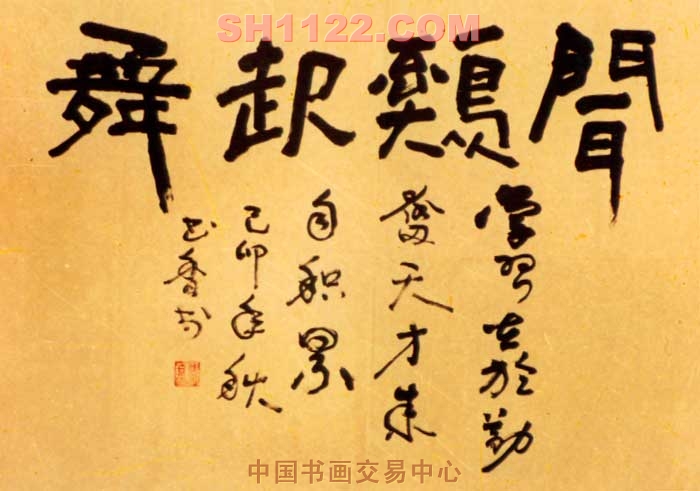 SH1122.COM
聞鷄起舞
学習在於勤
奋天才来
自积累
己卯年秋
中国书画交易中心